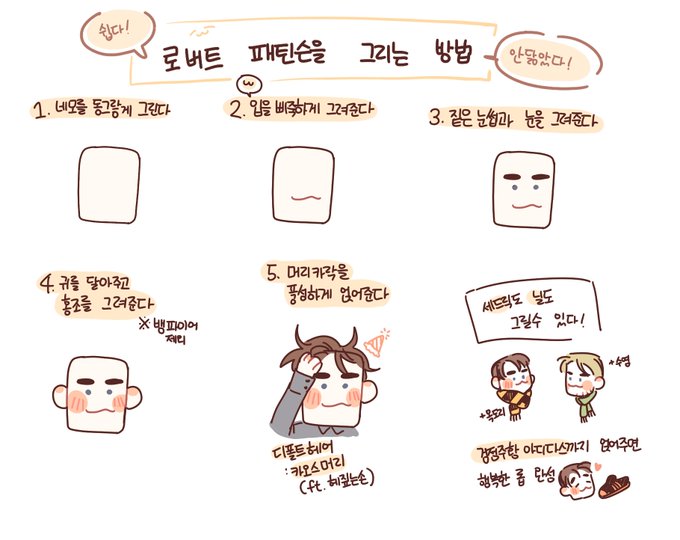 쉽다!
로버트 패틴슨을 그리는 방법
안닮았다!
1. 네모를 동그랗게 그린다
2. 입을 삐뚝하게 그려준다
3. 짙은 눈썹과 눈을 그려준다
4. 귀를 달아주고
홍조를 그려준다
※ 뱀파이어
제외
5. 머리카락을
풍성하게 얹어준다
디폴트헤어
: 카오스머리
(ft. 헤짚는손)
세드릭도 닐도
그릴수 있다!
+목도리
+수염
검정주황 아디다스까지 얹어주면
행복한 롭 탄생